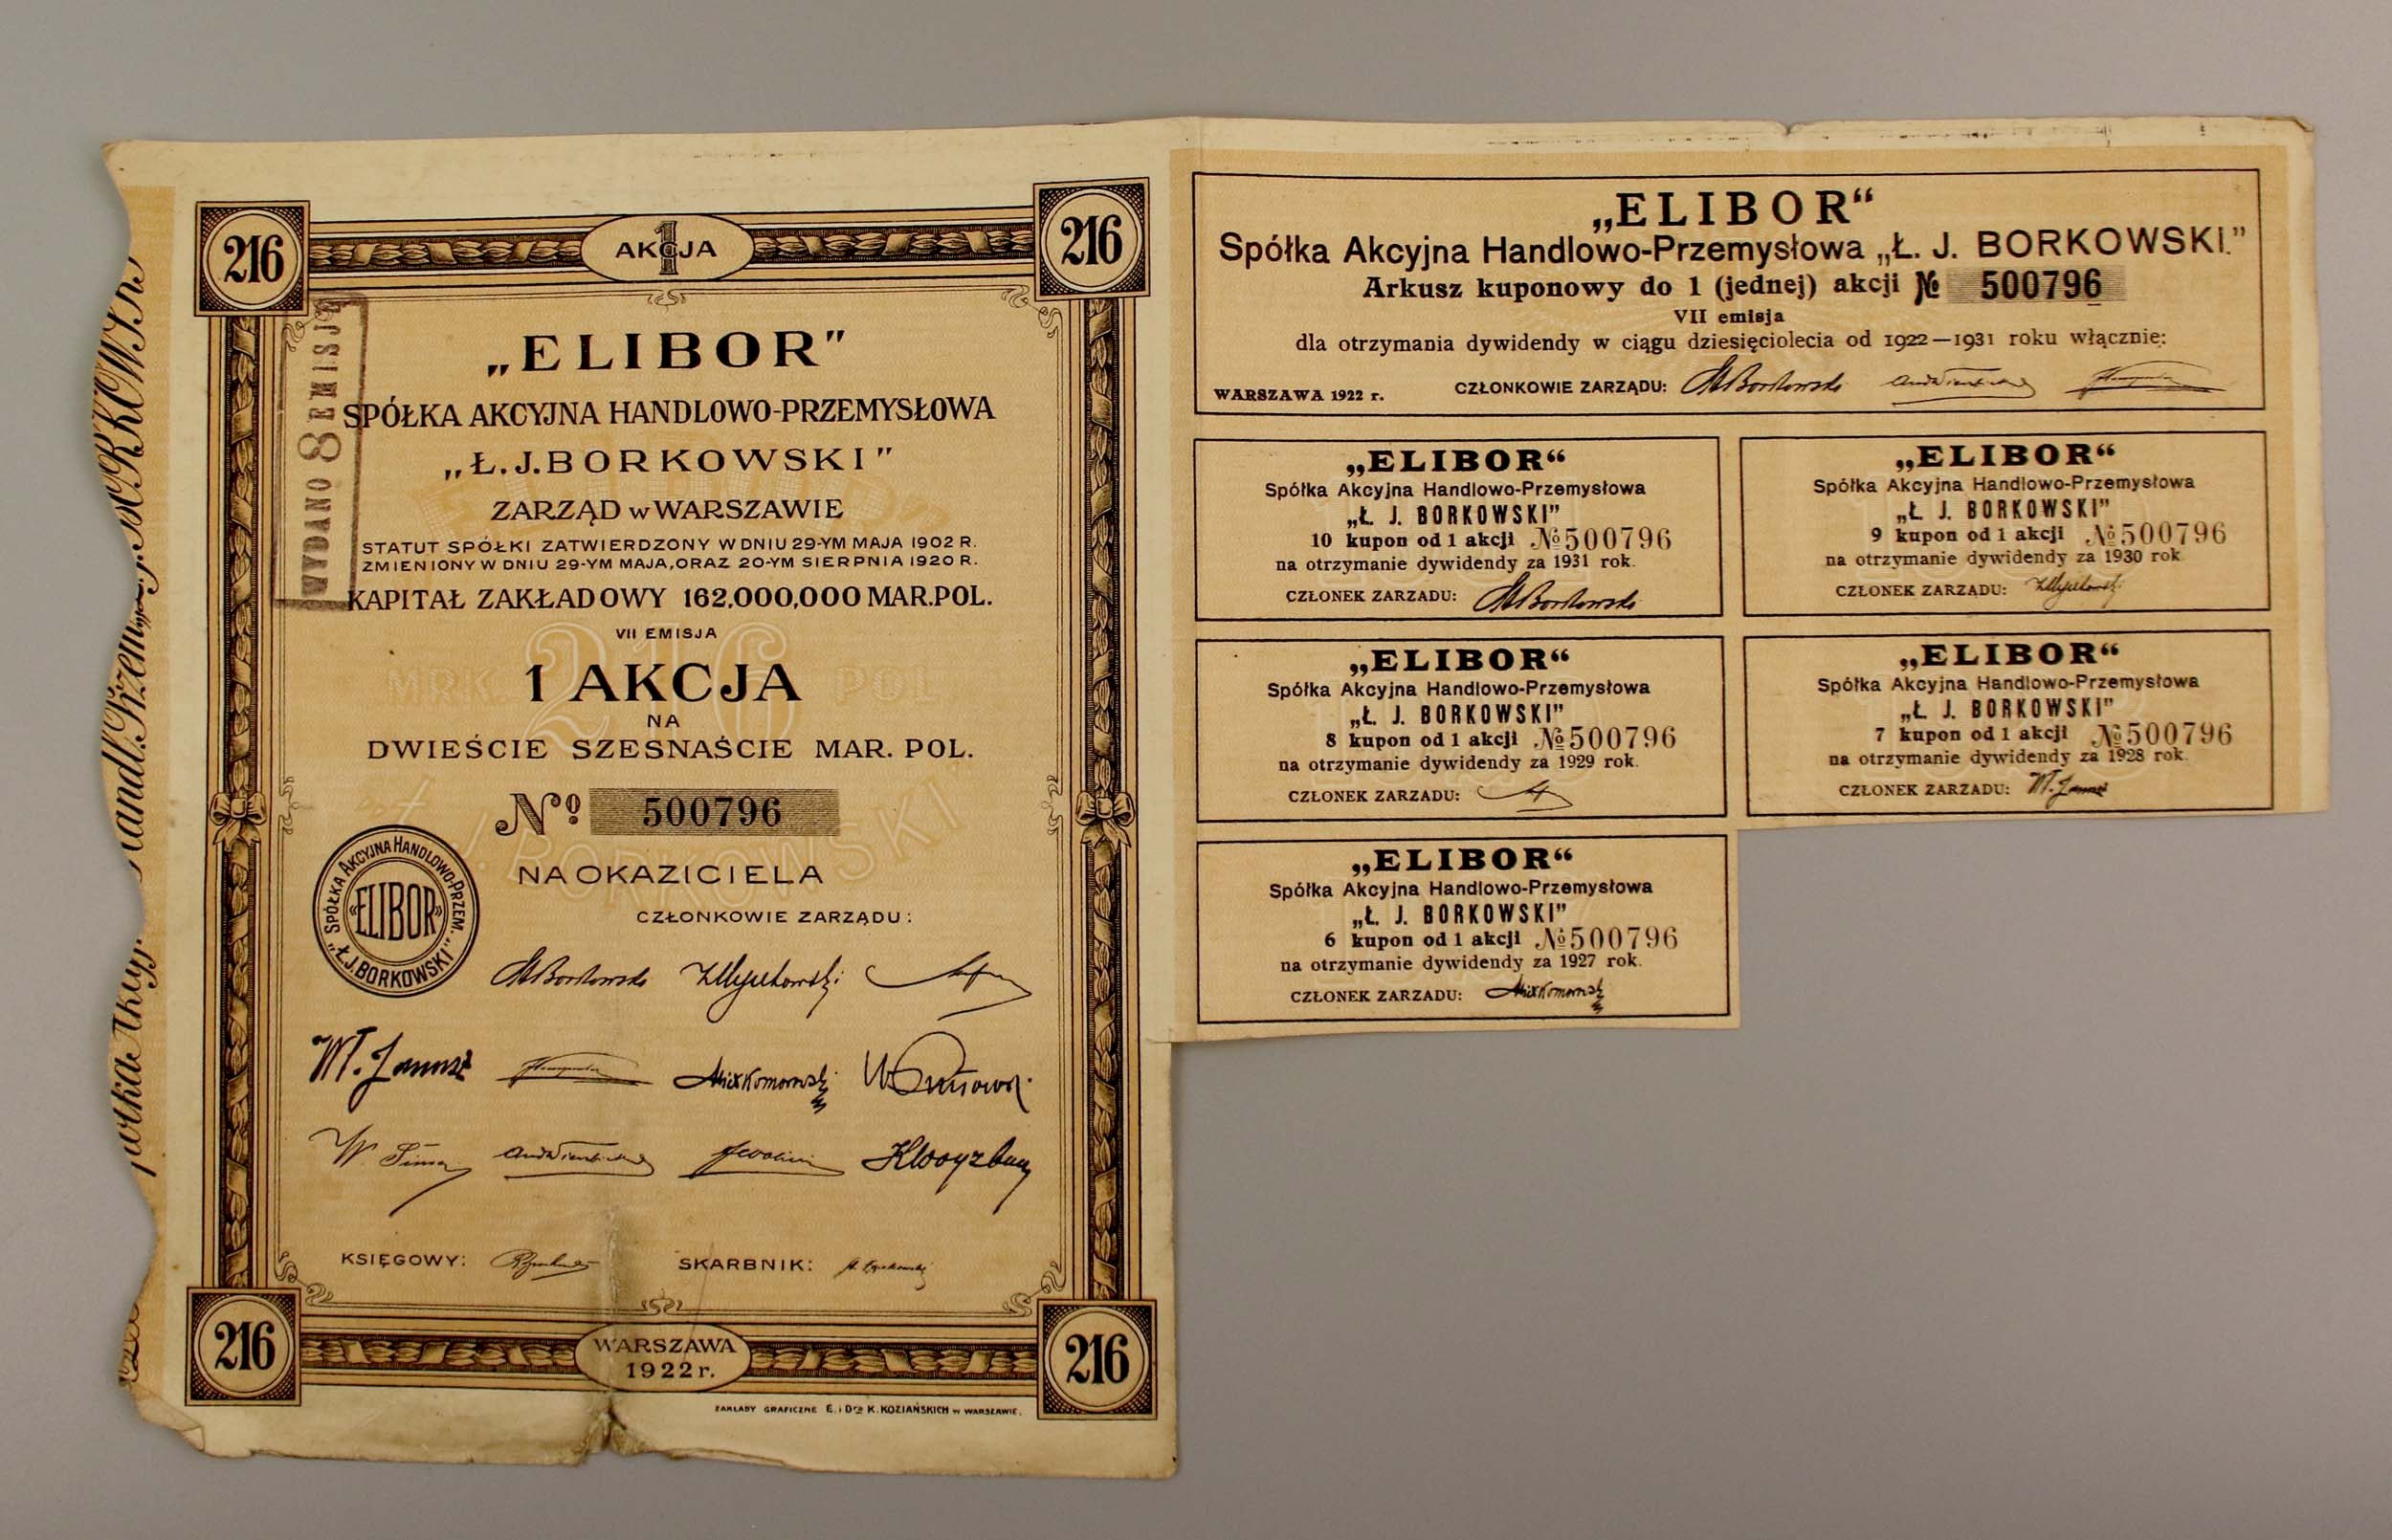 216
AKCJA
1
216
„ELIBOR"
SPÓŁKA AKCYJNA HANDLOWO-PRZEMYSŁOWA
„Ł. J. BORKOWSKI"
ZARZĄD w WARSZAWIE
STATUT SPÓŁKI ZATWIERDZONY W DNIU 29-YM MAJA 1902 R.
ZMIENIONY W DNIU 29-YM MAJA, ORAZ 20-YM SIERPNIA 1920 R.
KAPITAŁ ZAKŁADOWY 162.000,000 MAR. POL.
VII EMISJA
MRK. 216 POL
1 AKCJA
NA
DWIEŚCIE SZESNAŚCIE MAR. POL.
№ 500796
Ł. J. BORKOWSKI
NA OKAZICIELA
CZŁONKOWIE ZARZĄDU:
WYDANO 8 EMISJĘ
SPÓŁKA AKCYJNA HANDLOWO-PRZEM.
«ELIBOR»
„Ł.J. BORKOWSKI"
KSIĘGOWY:
SKARBNIK:
216
WARSZAWA
1922 r.
216
ZAKŁADY GRAFICZNE E. i Dra K. KOZIAŃSKICH w WARSZAWIE.
„ELIBOR“
Spółka Akcyjna Handlowo-Przemysłowa „Ł. J. BORKOWSKI.”
Arkusz kuponowy do 1 (jednej) akcji № 500796
VII emisja
dla otrzymania dywidendy w ciągu dziesięciolecia od 1922—1931 roku włącznie:
WARSZAWA 1922 r. CZŁONKOWIE ZARZĄDU:
„ELIBOR“
Spółka Akcyjna Handlowo-Przemysłowa
„Ł. J. BORKOWSKI”
10 kupon od 1 akcji №500796
na otrzymanie dywidendy za 1931 rok.
CZŁONEK ZARZADU:
„ELIBOR“
Spółka Akcyjna Handlowo-Przemysłowa
„Ł. J. BORKOWSKI”
9 kupon od 1 akcji №500796
na otrzymanie dywidendy za 1930 rok.
CZŁONEK ZARZADU:
„ELIBOR“
Spółka Akcyjna Handlowo-Przemysłowa
„Ł. J. BORKOWSKI”
8 kupon od 1 akcji №500796
na otrzymanie dywidendy za 1929 rok.
CZŁONEK ZARZADU:
„ELIBOR“
Spółka Akcyjna Handlowo-Przemysłowa
„Ł. J. BORKOWSKI”
7 kupon od 1 akcji №500796
na otrzymanie dywidendy za 1928 rok.
CZŁONEK ZARZADU:
„ELIBOR“
Spółka Akcyjna Handlowo-Przemysłowa
„Ł. J. BORKOWSKI”
6 kupon od 1 akcji №500796
na otrzymanie dywidendy za 1927 rok.
CZŁONEK ZARZADU: